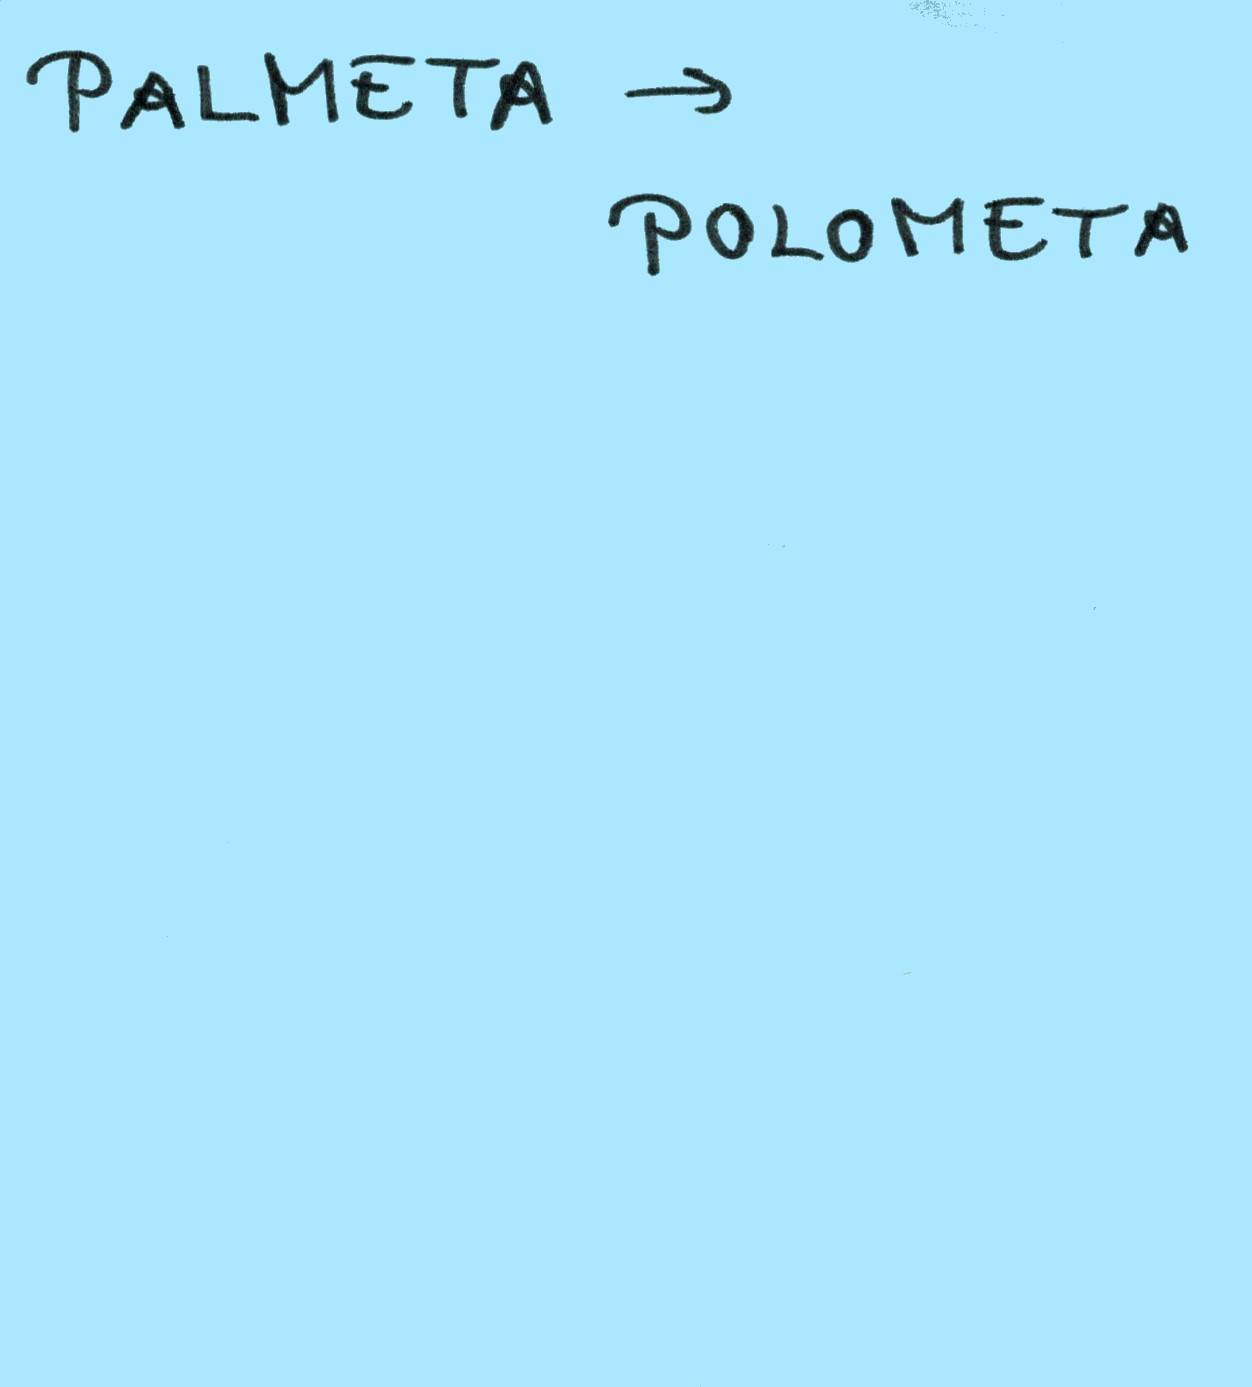 PALMETA →
POLOMETA